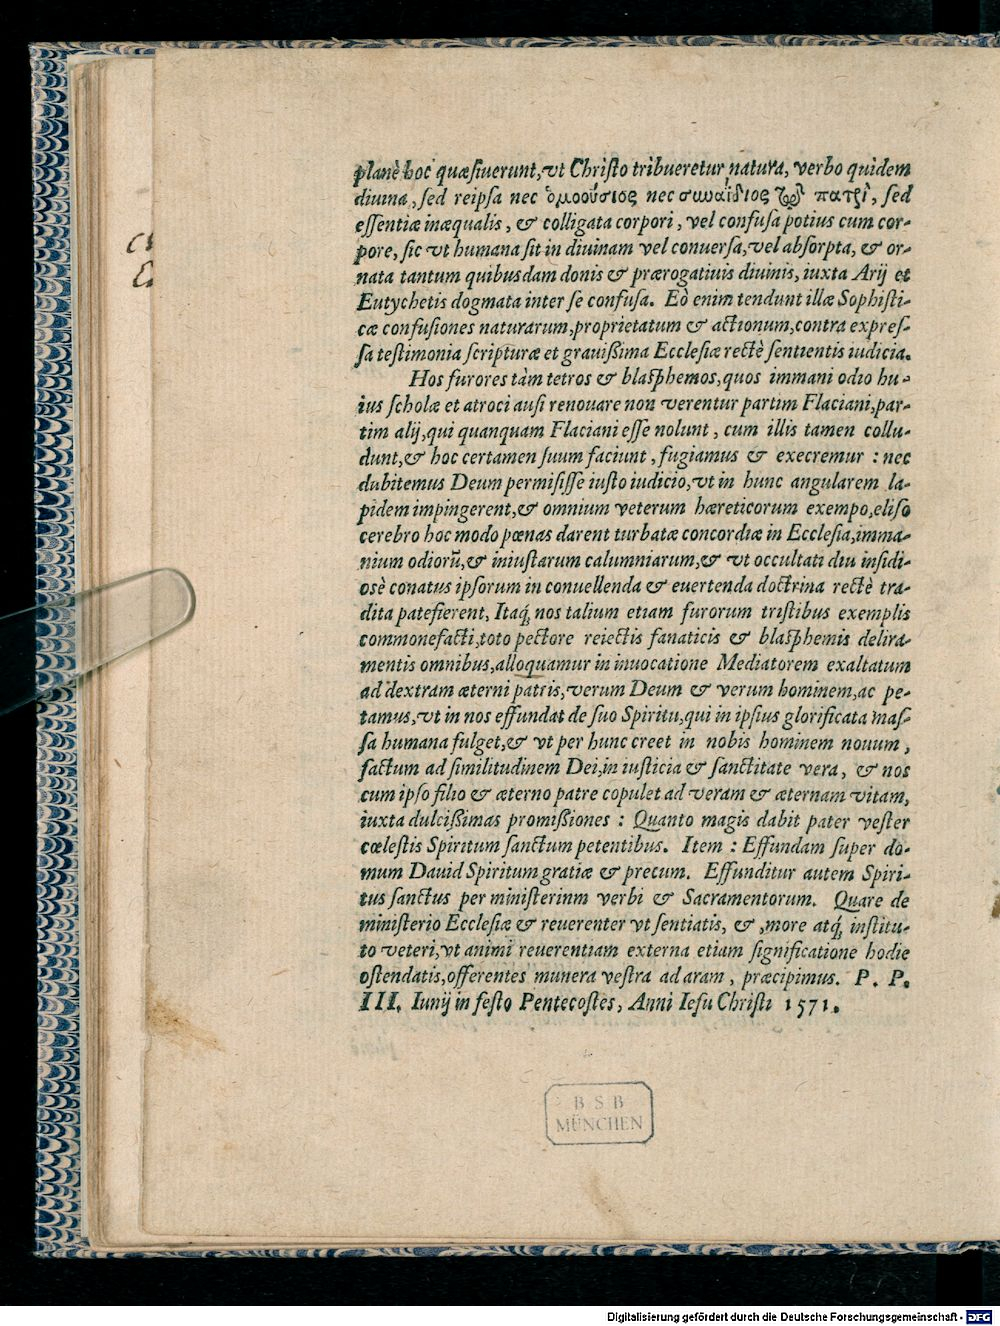 planè hoc quæsiuerunt, vt Christo tribueretur natura, verbo quidem
diuina, sed reipsa nec ὁμοούσιος nec συναΐδιος τῷ πατρὶ, sed
essentiæ inæqualis, & colligata corpori, vel confusa potius cum cor-
pore, sic vt humana sit in diuinam vel conuersa, vel absorpta, & or-
nata tantum quibusdam donis & prærogatiuis diuinis, iuxta Arij et
Eutychetis dogmata inter se confusa. Eò enim tendunt illæ Sophisti-
cæ confusiones naturarum, proprietatum & actionum, contra expres-
sa testimonia scripturæ et grauißima Ecclesiæ rectè sentientis iudicia.
Hos furores tàm tetros & blasphemos, quos immani odio hu-
ius scholæ et atroci ausi renouare non verentur partim Flaciani, par-
tim alij, qui quanquam Flaciani esse nolunt, cum illis tamen collu-
dunt, & hoc certamen suum faciunt, fugiamus & execremur : nec
dubitemus Deum permisisse iusto iudicio, vt in hunc angularem la-
pidem impingerent, & omnium veterum hæreticorum exempo, eliso
cerebro hoc modo pœnas darent turbatæ concordiæ in Ecclesia, imma-
nium odiorũ, & iniustarum calumniarum, & vt occultati diu insidi-
osè conatus ipsorum in conuellenda & euertenda doctrina rectè tra-
dita patefierent, Itaq́; nos talium etiam furorum tristibus exemplis
commonefacti, toto pectore reiectis fanaticis & blasphemis delira-
mentis omnibus, alloquamur in inuocatione Mediatorem exaltatum
ad dextram æterni patris, verum Deum & verum hominem, ac pe-
tamus, vt in nos effundat de suo Spiritu, qui in ipsius glorificata mas-
sa humana fulget, & vt per hunc creet in nobis hominem nouum,
factum ad similitudinem Dei, in iusticia & sanctitate vera, & nos
cum ipso filio & æterno patre copulet ad veram & æternam vitam,
iuxta dulcißimas promißiones : Quanto magis dabit pater vester
cœlestis Spiritum sanctum petentibus. Item : Effundam super do-
mum Dauid Spiritum gratiæ & precum. Effunditur autem Spiri-
tus sanctus per ministerinm verbi & Sacramentorum. Quare de
ministerio Ecclesiæ & reuerenter vt sentiatis, & , more atq́; institu-
to veteri, vt animi reuerentiam externa etiam significatione hodie
ostendatis, offerentes munera vestra ad aram, præcipimus. P. P.
III. Iunij in festo Pentecostes, Anni Iesu Christi 1571.
B S B
MÜNCHEN
Digitalisierung gefördert durch die Deutsche Forschungsgemeinschaft - DFG